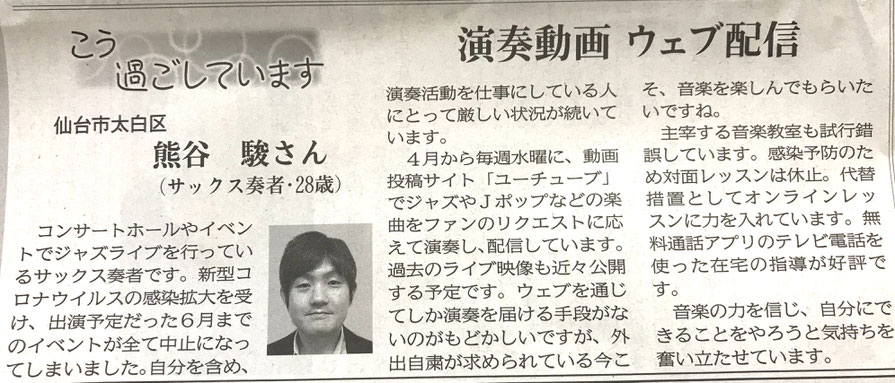 こう
過ごしています
仙台市太白区
熊谷　駿さん
（サックス奏者・28歳）
演奏動画 ウェブ配信
　コンサートホールやイベン
トでジャズライブを行ってい
るサックス奏者です。新型コ
ロナウイルスの感染拡大を受
け、出演予定だった６月まで
のイベントが全て中止になっ
てしまいました。自分を含め、
演奏活動を仕事にしている人
にとって厳しい状況が続いて
います。
　４月から毎週水曜に、動画
投稿サイト「ユーチューブ」
でジャズやＪポップなどの楽
曲をファンのリクエストに応
えて演奏し、配信しています。
過去のライブ映像も近々公開
する予定です。ウェブを通じ
てしか演奏を届ける手段がな
いのがもどかしいですが、外
出自粛が求められている今こ
そ、音楽を楽しんでもらいた
いですね。
　主宰する音楽教室も試行錯
誤しています。感染予防のた
め対面レッスンは休止。代替
措置としてオンラインレッ
スンに力を入れています。無
料通話アプリのテレビ電話を
使った在宅の指導が好評で
す。
　音楽の力を信じ、自分にで
きることをやろうと気持ちを
奮い立たせています。